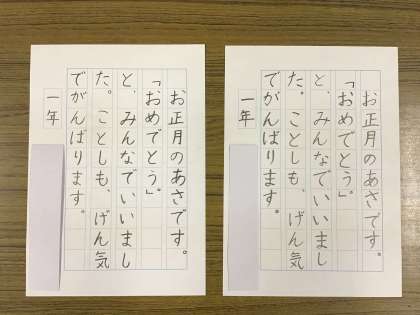 お正月のあさです。
「おめでとう。」
と、みんなでいいまし
た。ことしも、げん気
でがんばります。
一年
お正月のあさです。
「おめでとう。」
と、みんなでいいまし
た。ことしも、げん気
でがんばります。
一年